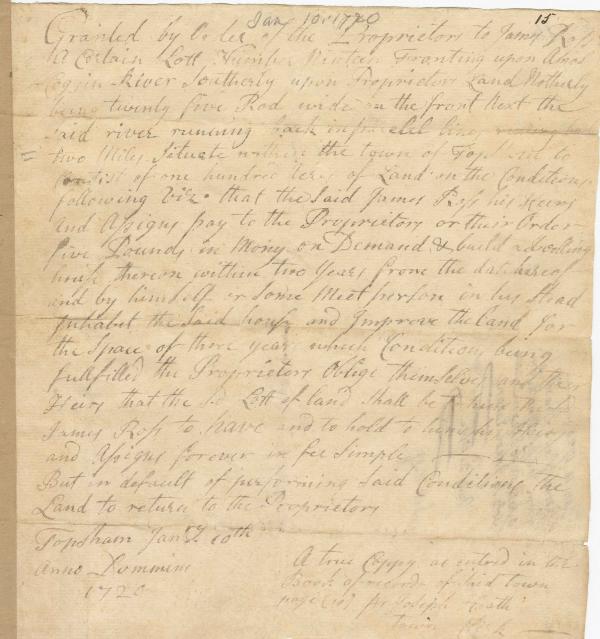 Jan 10 1720
15
Granted by Order of the Proprietors to James Ross
A Certain Lott Number Ninteen Fronting upon Amos
coggin River Southerly upon Proprietors Land Notherly
being twenty five Rod wide on the front Next the
said river running back in parelel lines
two Miles Situate within the town of Topsham to
Consist of one hundred Acres of Land on the Conditions
following Viz. that the Said James Ross his Heirs
and Assigns pay to the Proprietors or their Order
five Pounds in Money on Demand & build a dwelling
house thereon within two Years from the date hereof
and by himself or Some Meet person in his Stead
Inhabit the Said house and Improve the land for
the Space of three years which Conditions being
fullfilled the Proprietors Oblige themselves and their
Heirs that the sd Lott of land Shall be
James Ross to have and to hold to him his Heirs
and Assigns forever in fee Simple
But in default of performing Said Conditions The
Land to return to the Proprietors
Topsham Jany. 10th
Anno Dommini
1720
A true Coppy as entred in the
Book of records of Said town
page pr Joseph
Town